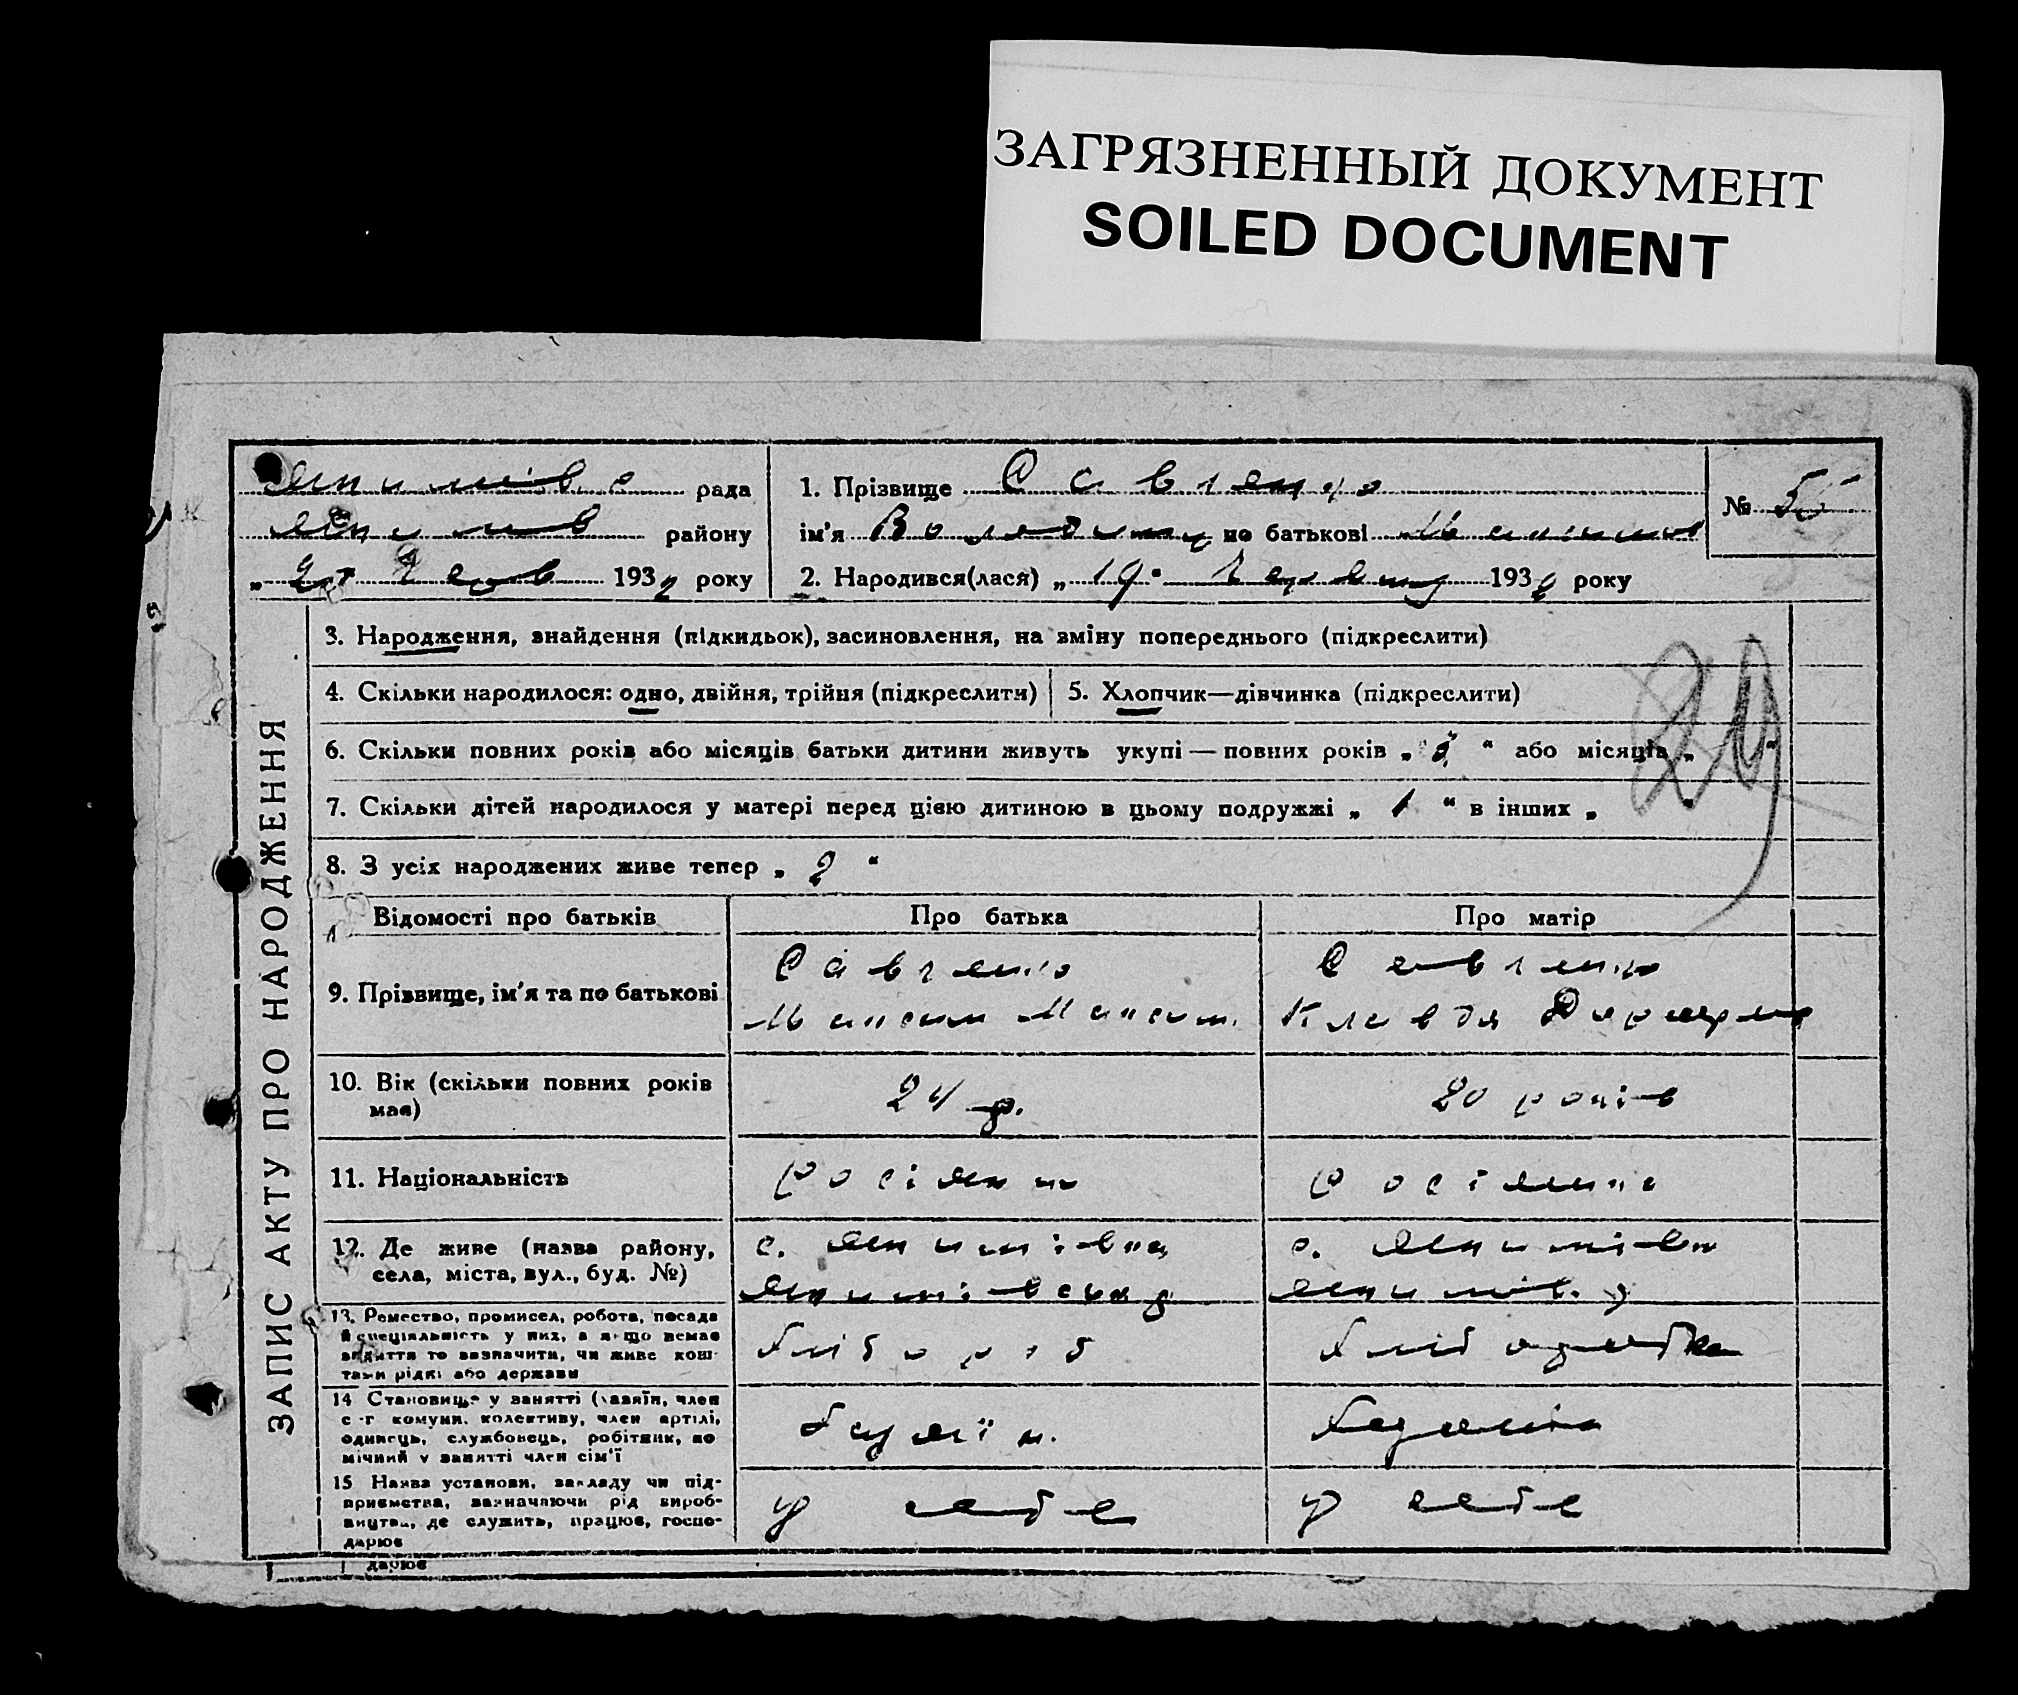 ЗАГРЯЗНЕННЫЙ ДОКУМЕНТ
SOILED DOCUMENT
рада
району
„ 1932 року
1. Прізвище Савченко
ім'я Володимир по батькові
2. Народився(лася) „19" Червня 1932 року
№
ЗАПИС АКТУ ПРО НАРОДЖЕННЯ
3. Народження, знайдення (підкидьок), засиновлення, на зміну попереднього (підкреслити)
4. Скільки народилося: одно, двійня, трійня (підкреслити)
5. Хлопчик—дівчинка (підкреслити)
6. Скільки повних років або місяців батьки дитини живуть укупі — повних років „ 3 “ або місяців „ “
29
7. Скільки дітей народилося у матері перед цією дитиною в цьому подружжі „ 1 “ в інших „ “
8. З усіх народжених живе тепер „ 2 “
Відомості про батьків
Про батька
Про матір
9. Прізвище, ім'я та по батькові
Савченко
Максим Максим.
Савченко
Клавдя
10. Вік (скільки повних років
має)
24 р.
20 років
11. Національність
росіянин
росіянка
12. Де живе (назва району,
села, міста, вул., буд. №)
с. Якимівка
с. Якимівка
13. Ремество, промисел, робота, посада
й спеціяльність у них, а якщо немає
заняття то зазначити, чи живе кош-
тами рідні або держави
Хлібороб
Хлібородка
14 Становище у занятті (хазяїн, член
с-г комуни, колективу, член артілі,
одинець, службовець, робітник, по
мічний у занятті член сім'ї
15 Назва установи, закладу чи під-
приємства, зазначаючи рід вироб-
ництва, де служить, працює, госпо-
дарює
у себе
у себе
дарює